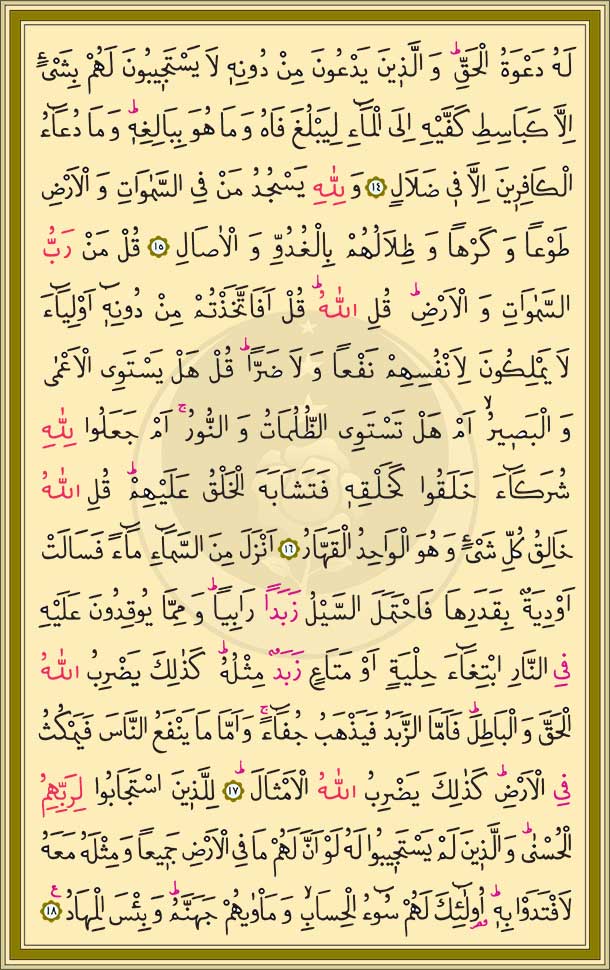 لَهُ دَعْوَةُ الْحَقِّۜ وَ الَّذ۪ينَ يَدْعُونَ مِنْ دُونِه۪ لَا يَسْتَج۪يبُونَ لَهُمْ بِشَىْءٍ
اِلَّا كَبَاسِطِ كَفَّيْهِ اِلَى الْمَٓاءِ لِيَبْلُغَ فَاهُ وَ مَا هُوَ بِبَالِغِه۪ۜ وَ مَا دُعَٓاءُ
الْكَافِر۪ينَ اِلَّا ف۪ى ضَلَالٍ ﴿١٤﴾ وَ لِلّٰهِ يَسْجُدُ مَنْ فِى السَّمٰوَاتِ وَ الْاَرْضِ
طَوْعاً وَ كَرْهاً وَ ظِلَالُهُمْ بِالْغُدُوِّ وَ الْاٰصَالِ ﴿١٥﴾ قُلْ مَنْ رَبُّ
السَّمٰوَاتِ وَ الْاَرْضِۜ قُلِ اللّٰهُۜ قُلْ اَفَاتَّخَذْتُمْ مِنْ دُونِه۪ٓ اَوْلِيَٓاءَ
لَا يَمْلِكُونَ لِاَنْفُسِهِمْ نَفْعاً وَ لَا ضَرًّاۜ قُلْ هَلْ يَسْتَوِى الْاَعْمٰى
وَ الْبَص۪يرُۙ اَمْ هَلْ تَسْتَوِى الظُّلُمَاتُ وَ النُّورُۚ اَمْ جَعَلُوا لِلّٰهِ
شُرَكَٓاءَ خَلَقُوا كَخَلْقِه۪ فَتَشَابَهَ الْخَلْقُ عَلَيْهِمْۜ قُلِ اللّٰهُ
خَالِقُ كُلِّ شَىْءٍ وَ هُوَ الْوَاحِدُ الْقَهَّارُ ﴿١٦﴾ اَنْزَلَ مِنَ السَّمَٓاءِ مَٓاءً فَسَالَتْ
اَوْدِيَةٌ بِقَدَرِهَا فَاحْتَمَلَ السَّيْلُ زَبَداً رَابِياًۜ وَ مِمَّا يُوقِدُونَ عَلَيْهِ
فِى النَّارِ ابْتِغَٓاءَ حِلْيَةٍ اَوْ مَتَاعٍ زَبَدٌ مِثْلُهُۜ كَذٰلِكَ يَضْرِبُ اللّٰهُ
الْحَقَّ وَ الْبَاطِلَۜ فَاَمَّا الزَّبَدُ فَيَذْهَبُ جُفَٓاءًۚ وَ اَمَّا مَا يَنْفَعُ النَّاسَ فَيَمْكُثُ
فِى الْاَرْضِۜ كَذٰلِكَ يَضْرِبُ اللّٰهُ الْاَمْثَالَۜ ﴿١٧﴾ لِلَّذ۪ينَ اسْتَجَابُوا لِرَبِّهِمُ
الْحُسْنٰىۜ وَ الَّذ۪ينَ لَمْ يَسْتَج۪يبُوا لَهُ لَوْ اَنَّ لَهُمْ مَا فِى الْاَرْضِ جَم۪يعاً وَ مِثْلَهُ مَعَهُ
لَافْتَدَوْا بِه۪ۜ اُو۬لٰٓئِكَ لَهُمْ سُٓوءُ الْحِسَابِۙ وَ مَاْوٰيهُمْ جَهَنَّمُۜ وَ بِئْسَ الْمِهَادُ۟ ﴿١٨﴾